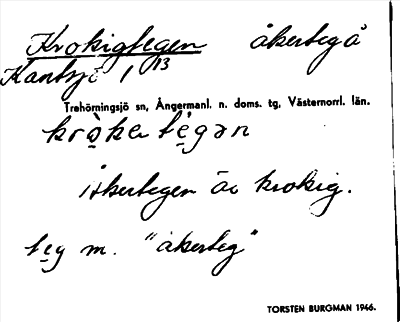 Krokigtegen åkerteg å
Kantsjö 1 13
Trehörningsjö sn, Ångermanl. n. doms. tg, Västernorrl. län.
krò̱ke te̱gən
åkertegen är krokig.
te̱g m. "åkerteg"
TORSTEN BURGMAN 1946.